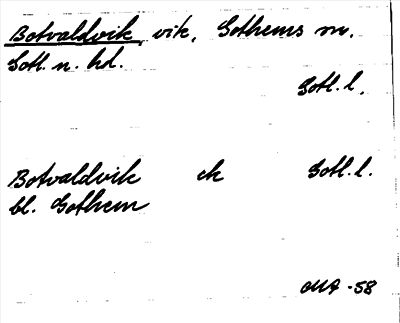 Botvaldvik, vik, Gothems sn.
Gotl. n. hd.
Gotl. l.
Botvaldvik ek Gotl. l.
bl. Gothem
-58